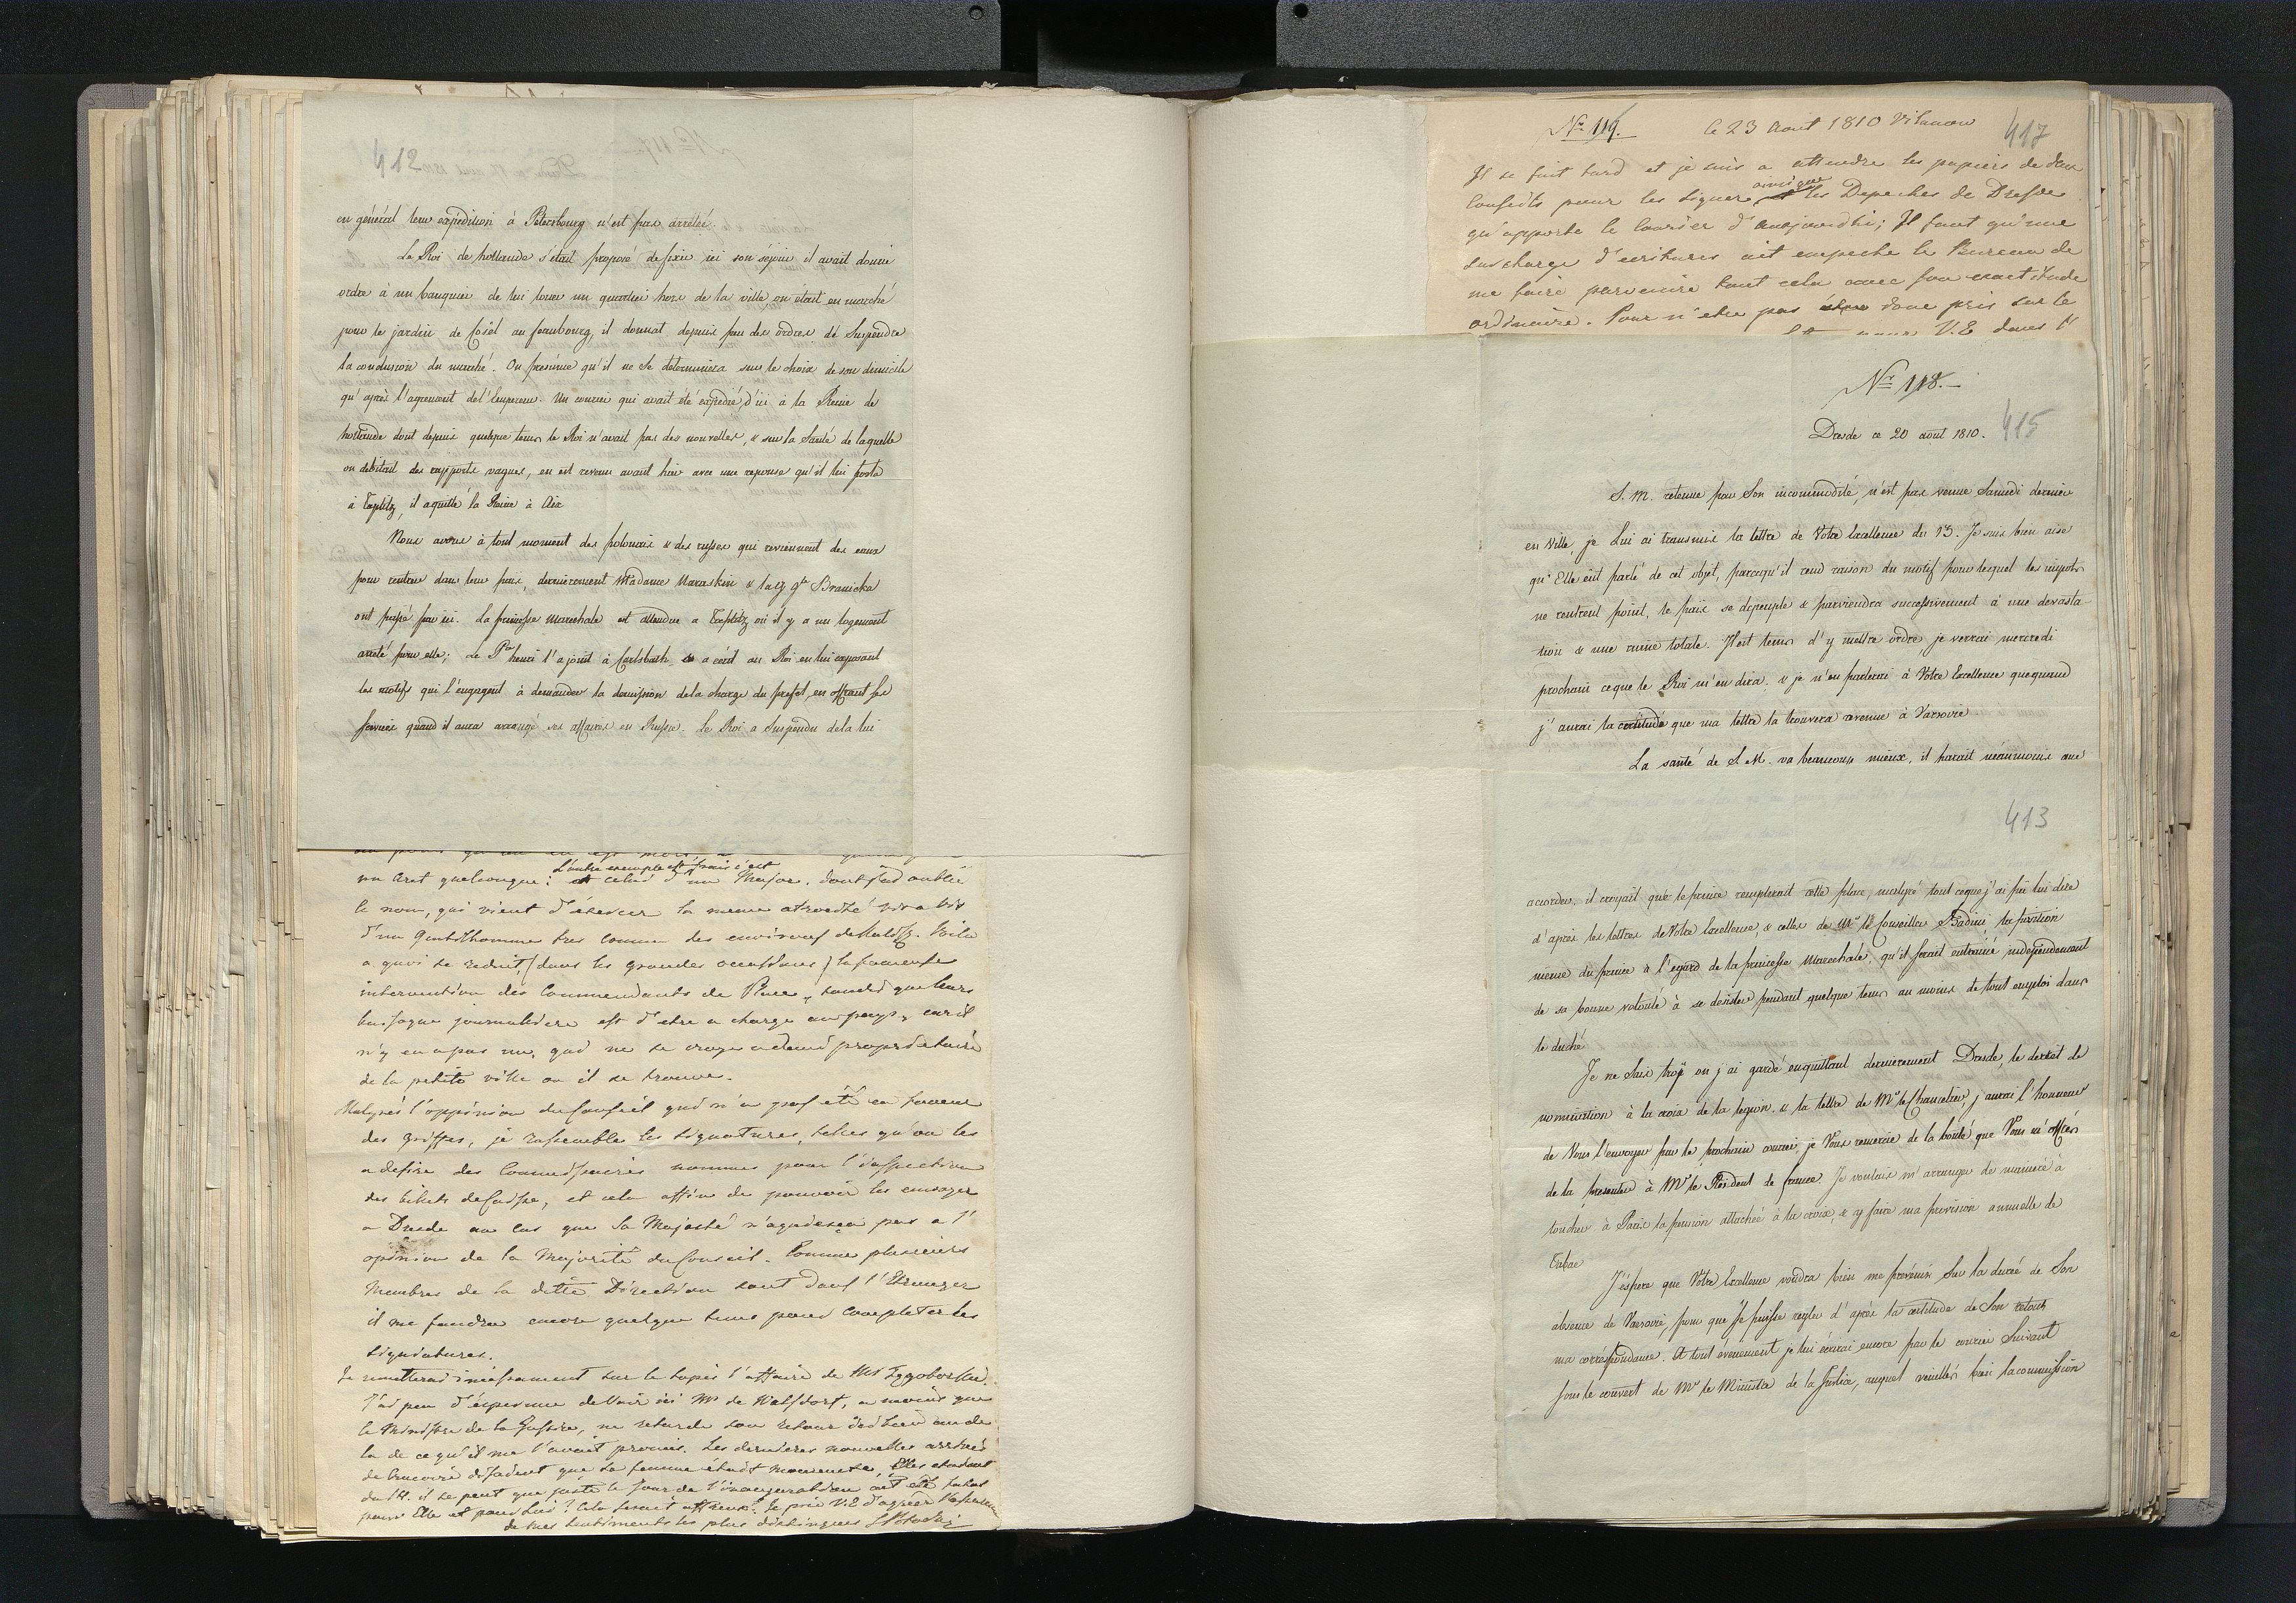 412
en général leur expédition à Petersbourg n'est pas arrêtée.
Le Roi de hollande s'était proposé de fixer ici son séjour il avait donné
ordre à un banquier de lui louer un quartier hors de la ville, on était en marché
pour le jardin de Cosel au faubourg, il donnat depuis peu des ordres de Suspendre
la conclusion du marché. On présume qu'il ne se déterminera sur le choix de son domicile
qu'après l'agrement de l'Empereur. Un courier qui avait été expedié d'ici à la Reine de
hollande dont depuis quelque tems le Roi n'avait pas des nouvelles, & sur la Santé de laquelle
on debitait des rapports vagues, en est revenu avant hier avec une reponse qu'il lui porta
à Toeplitz, il a quitté la Reine à Aix
Nous avons à tout moment des polonais & des russes qui reviennent des eaux
pour rentrer dans leur païs, dernierement Madame Naraskin & la Branicka
ont passé par ici. La princesse Marechale est attendue a Toeplitz où il y a un logement
arreté pour elle; Le Pce henri l'a joint à Carlsbath, a écrit au Roi en lui exposant
les motifs qui l'engagent à demander la demission de la charge du prefet, en offrant ses
services quand il aura arrangé ses affaires en Russie. Le Roi a Suspendu de la lui
un Aret quelconque; L'autre exemple c'est
celui d'un Major, dont j'ai oublié
le nom, qui vient d'exercer la meme atrocité vis a vis
d'un Gentilhomme tres connu des environs de Kalisz. Voila
a quoi se reduit, (dans les grandes occasions) la fameuse
intervention des Commendants de Place, tandis que leurs
besogne journaliere est d'etre a charge au pays, car il
n'y en a pas un, qui ne se croye a demi proprietaire
de la petite ville ou il se trouve.
Malgrés l'oppinion du Conseil qui n'a pas été en faveur
des griffes, je rassemble les signatures, telles qu'on les
a desire des Commissaires nommes pour l'inspection
des billets de Caisse, et cela affin de pouvoir les envoyer
a Dresde au cas que Sa Majesté n'aquiesça pas a l'
opinion de la Majorité du Conseil. Comme plusieurs
Membres de la ditte Direction sont dans l'Etranger
il me faudra encore quelque tems pour completer les
signatures.
Je remetterai incessament sur le tapis l'affaire de
J'ai peu d'esperance de voir ici Mr de Watzdorf, a moins que
le Ministre de la Justice, ne retarde son retour
la de ce qu'il me l'avait promis. Les dernieres nouvelles arrivés
de Cracovie disaient que sa femme etait mourante,
du 14. il se peut que juste le jour de l'inauguration ait été fatal
pour Elle et pour Lui? Cela serait affreux! Je prie V.E d'agréer
de mes sentiments les plus distingués
No 119. le 23 Aout 1810 Vilanow 417
Il se fait tard et je suis a attendre les papiers de deux
Conseils pour les signer, ainsi que les Depeches de Dresde
qu'apporte le Courier d'aujourdhi; Il faut qu'une
surcharge d'ecritures ait empeché le Bureau de
me faire parvenire tout cela avec son exactitude
ordinaire. Pour n'etre pas donc pris sur le
V.E dans l'
No 118.
Dresde ce 20 août 1810. 415
S. M. retenue par Son incommodité, n'est pas venue Samedi dernier
en Ville, je Lui ai transmis la lettre de Votre Excellence du 13. Je suis bien aise
qu'Elle eut parlé de cet objet, parcequ'il rend raison du motif pour lequel les impots
ne rentrent point, le païs se depeuple & parviendra successivement à une devasta-
tion & une ruine totale. Il est tems d'y mettre ordre je verrai mercredi
prochain ce que le Roi m'en dira. & je n'en parlerai à Votre Excellence que quand
j'aurai la certitude que ma lettre la trouvera revenue à Varsovie
La santé de S. M. va beaucoup mieux, il parait néanmoins que
413
accorder. il croyait que le prince remplirait cette place, malgré tout ce que j'ai pu lui dire
d'après les lettres de Votre Excellence, & celles de Mr le Conseiller Badini, la position
meme du prince à l'egard de la princesse Marechale, qu'il serait entrainé independament
de sa bonne volonté à se desister pendant quelque tems au moins de tout emploi dans
le duché
Je ne Sais trop ou j'ai gardé en quittant dernierement Dresde, le decret de
nomination à la croix de la legion. & la lettre de Mr le Chancelier, j'aurai l'honneur
de Vous l'envoyer par le prochain courier, je Vous remercie de la bonté que Vous m'offrés
de la presenter à Mr le Résident de france. Je voulais m'arranger de maniere à
toucher à Paris la pension attachée à la croix, & y faire ma provision annuelle de
Tabac
J'éspere que Votre Excellence voudra bien me prévenir Sur la durée de Son
absence de Varsovie, pour que Je puisse regler d'après la certitude de Son retour
ma correspondance. A tout évenement je lui écrirai encore par le courier Suivant
Sous le couvert de Mr le Ministre de la Justice, auquel veuillés bien la commission